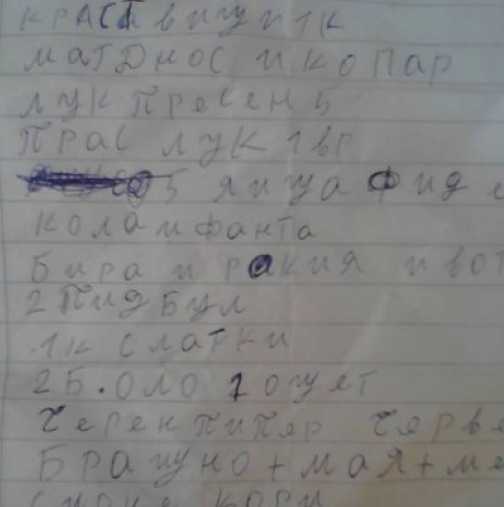 КРАСТАВИЦИ 1К
МАГДНОС И КОПАР
ЛУК ПРЕСЕН 5
ПРАС ЛУК 1ВР
5 ЯИЦА ФИДЕ
КОЛА И ФАНТА
БИРА И РАКИЯ И ВОТ
2 ПИДБУЛ
1К СЛАТКИ
2 Б. ОЛО 1 ОЦЕТ
ЧЕРЕН ПИПЕР ЧЕРВЕ
БРАШНО + МАЯ + МЕ